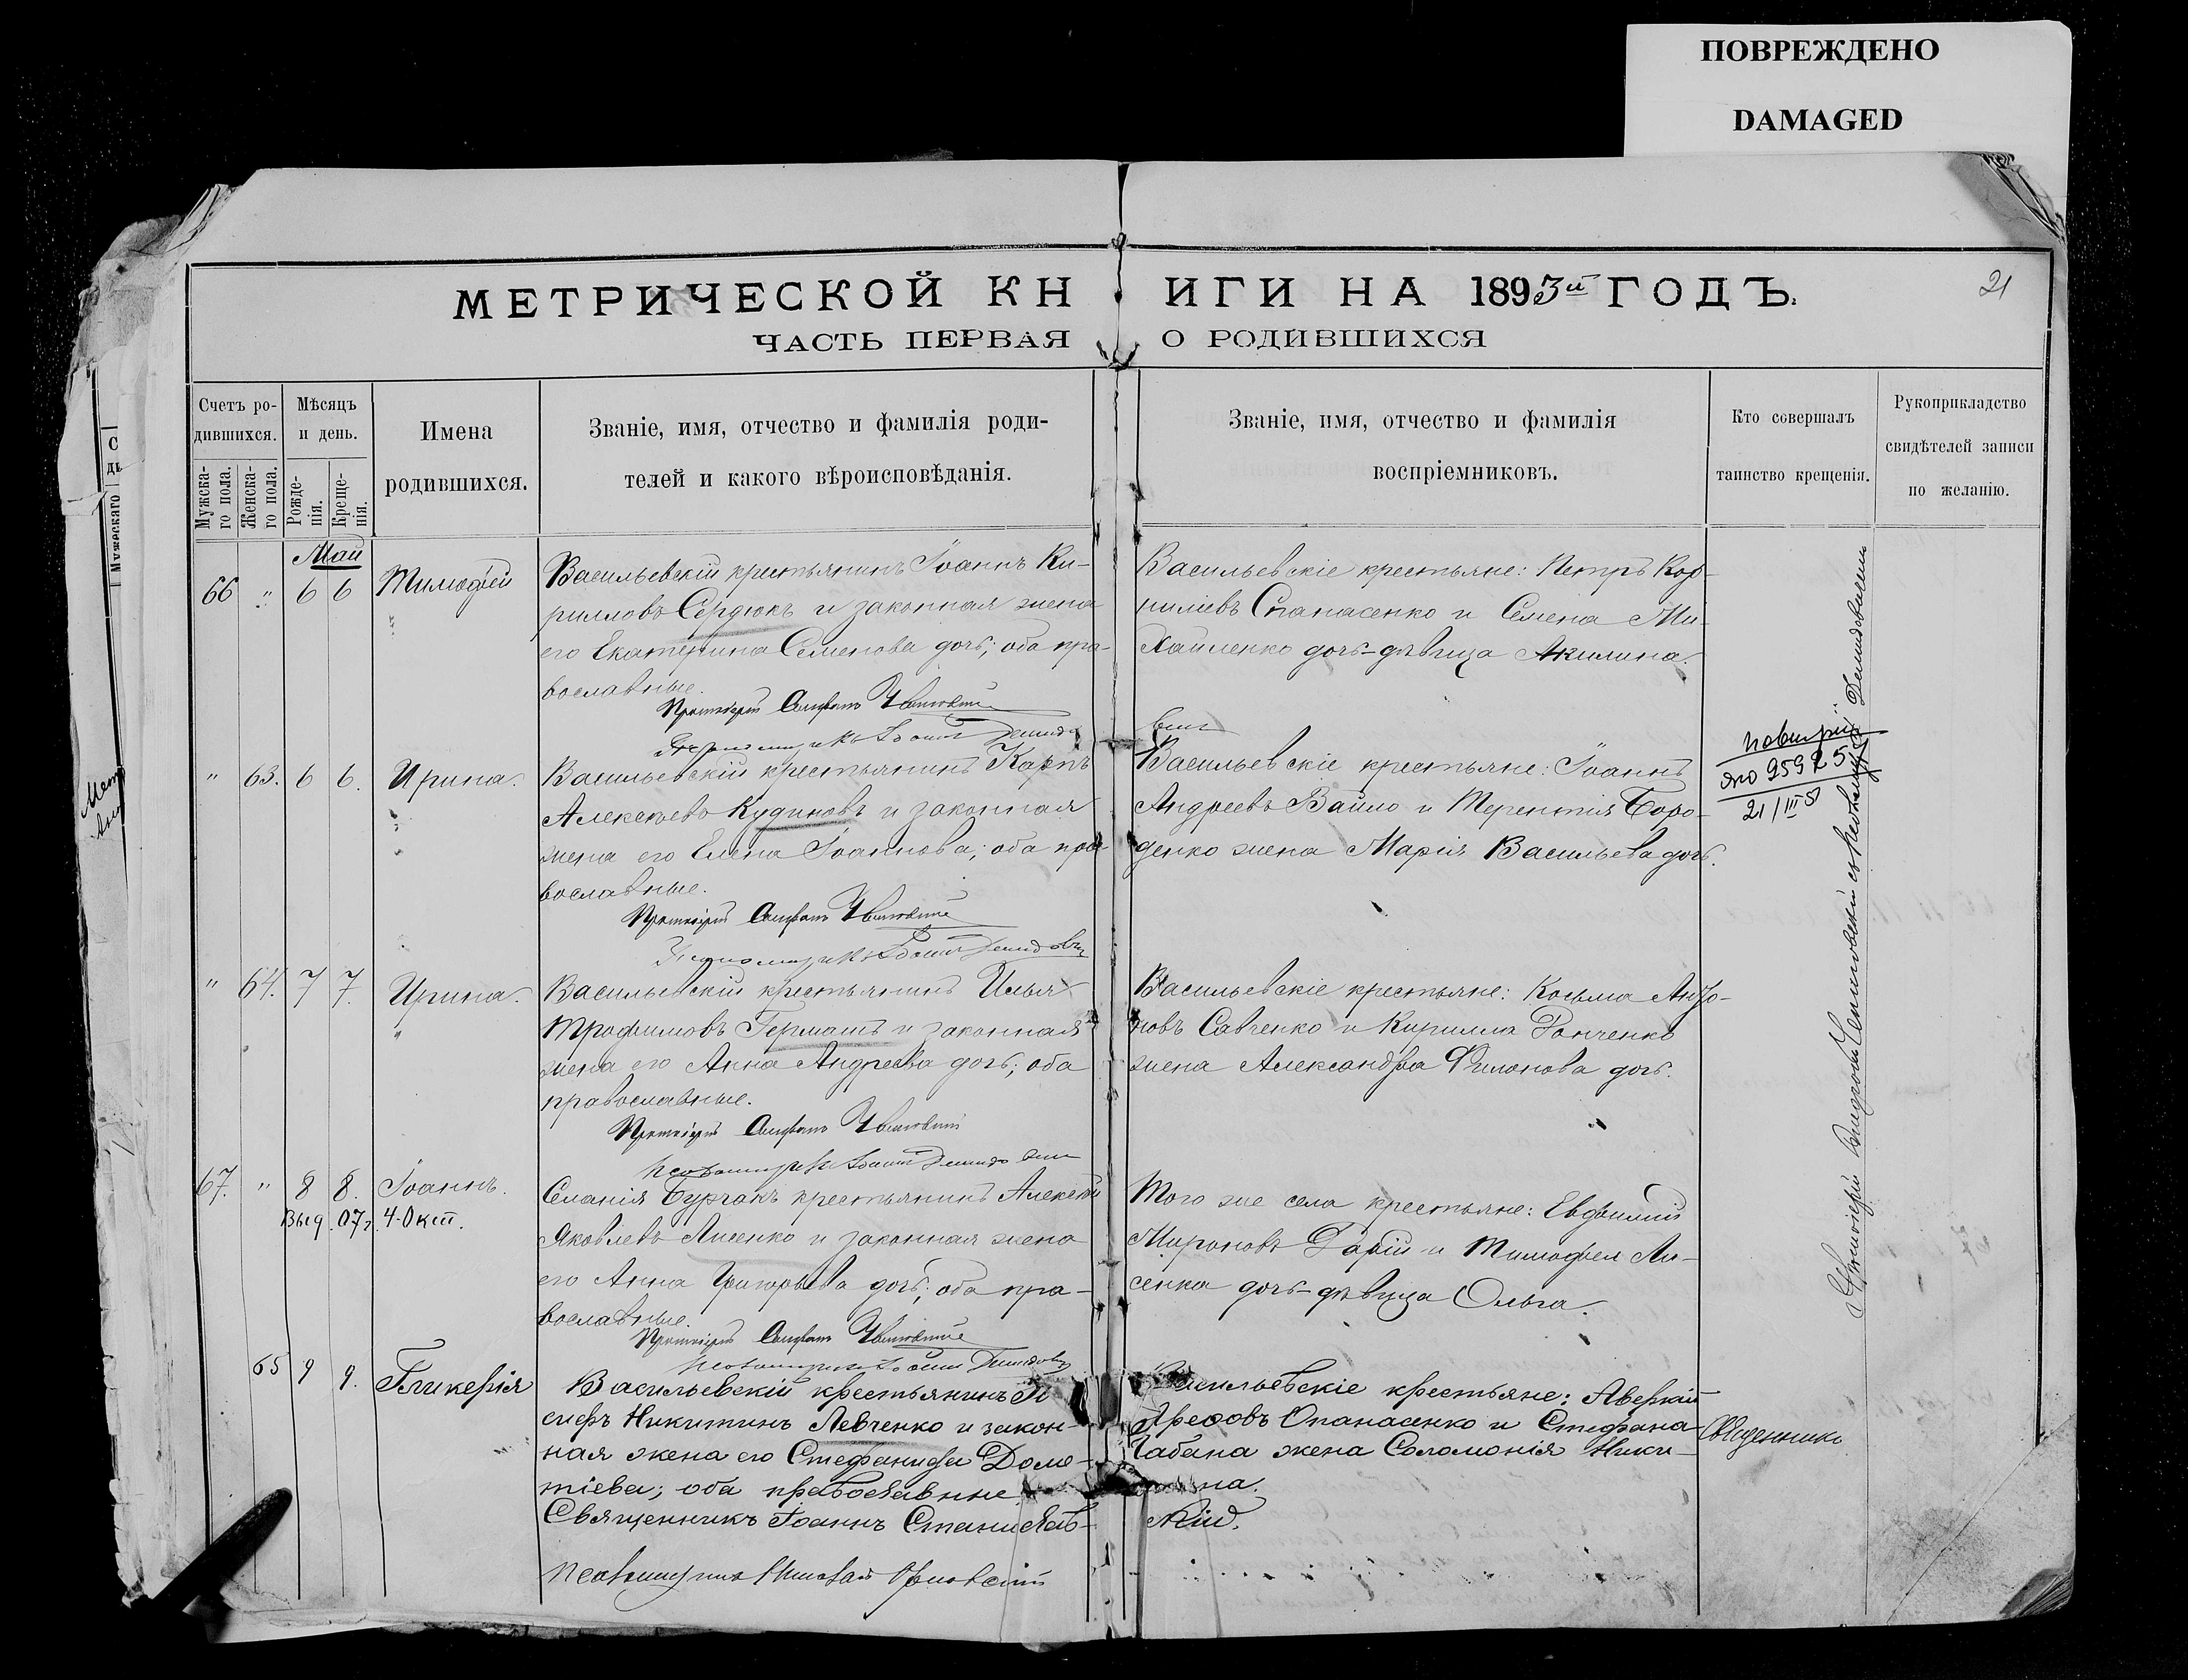 ПОВРЕЖДЕНО
DAMAGED
МЕТРИЧЕСКОЙ КНИГИ НА 1893й ГОДЪ.
21
ЧАСТЬ ПЕРВАЯ О РОДИВШИХСЯ
Счетъ родившихся.
Мужскаго пола.
Женскаго пола.
Мѣсяцъ и день.
Рожденія.
Крещенія.
Имена родившихся.
Званіе, имя, отчество и фамилія родителей и какого вѣроисповѣданія.
Званіе, имя, отчество и фамилія воспріемниковъ.
Кто совершалъ таинство крещенія.
Рукоприкладство свидѣтелей записи по желанію.
Май
66 " 6 6 Тимофей
Васильевскій крестьянинъ Іоаннъ Ки-
рилловъ Сердюкъ и законная жена
его Екатерина Семенова дочь; оба пра-
вославные.
Васильевскіе крестьяне: Петръ Кор-
ниліевъ Опанасенко и Семена Ми-
хайленко дочь-дѣвица Акилина.
Протоіерей
" 63. 6 6. Ирина.
Васильевскій крестьянинъ Карпъ
Алексѣевъ Кудиновъ и законная
жена его Елена Іоаннова; оба пра-
вославные.
Васильевскіе крестьяне: Іоаннъ
Андреевъ Вайло и Терентія Боро-
денко жена Марія Васильева дочь.
Протоіерей
21/III
" 64. 7 7. Ирина.
Васильевскій крестьянинъ Илья
Трофимовъ Германъ и законная
жена его Анна Андреева дочь; оба
православные.
Васильевскіе крестьяне: Косьма Анто-
новъ Савченко и Кирилла Ганченко
жена Александра Филонова дочь.
Протоіерей
67. " 8 8. Іоаннъ.
Выд. 07г. 4 Окт.
Селанія Бурчакъ крестьянинъ Алексѣй
Яковлевъ Лисенко и законная жена
его Анна Григорьева дочь; оба пра-
вославные.
Того же села крестьяне: Евфимій
Мироновъ Гарій и Тимофея Ли-
сенка дочь-дѣвица Ольга.
Протоіерей
65 9 9. Гликерія
Васильевскій крестьянинъ Іо
сифъ Никитинъ Левченко и закон-
ная жена его Стефанида Доме-
тіева; оба православные.
Васильевскіе крестьяне: Аверкій
Арефовъ Опанасенко и Стефана
Чабана жена Соломонія Ники-
на.
Священникъ
Священникъ Іоаннъ Станиславскій.
Псаломщикъ